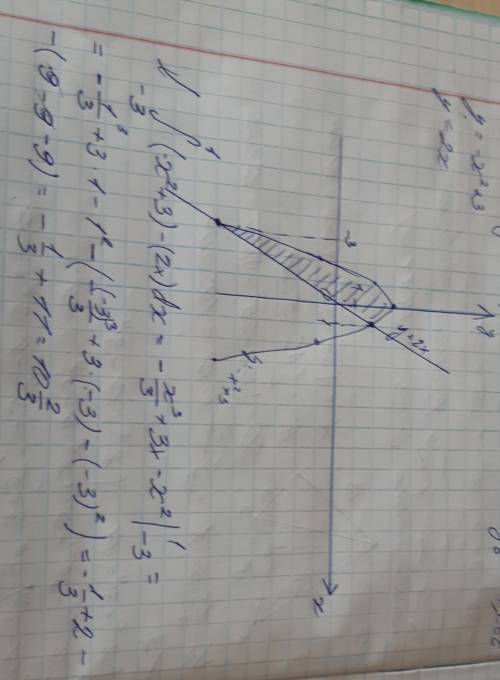 y = -x²+3
y = 2x
y
-3
1
y=2x
y=-x²+3
x
-3∫¹ (-x²+3)-(2x)dx = -x³/3 + 3x - x² |¹ -3 =
= -1³/3 + 3·1 - 1² - (-(-3)³/3 + 3·(-3) - (-3)²) = -1/3 + 2 -
-(9-9-9) = -1/3 + 11 = 10 2/3